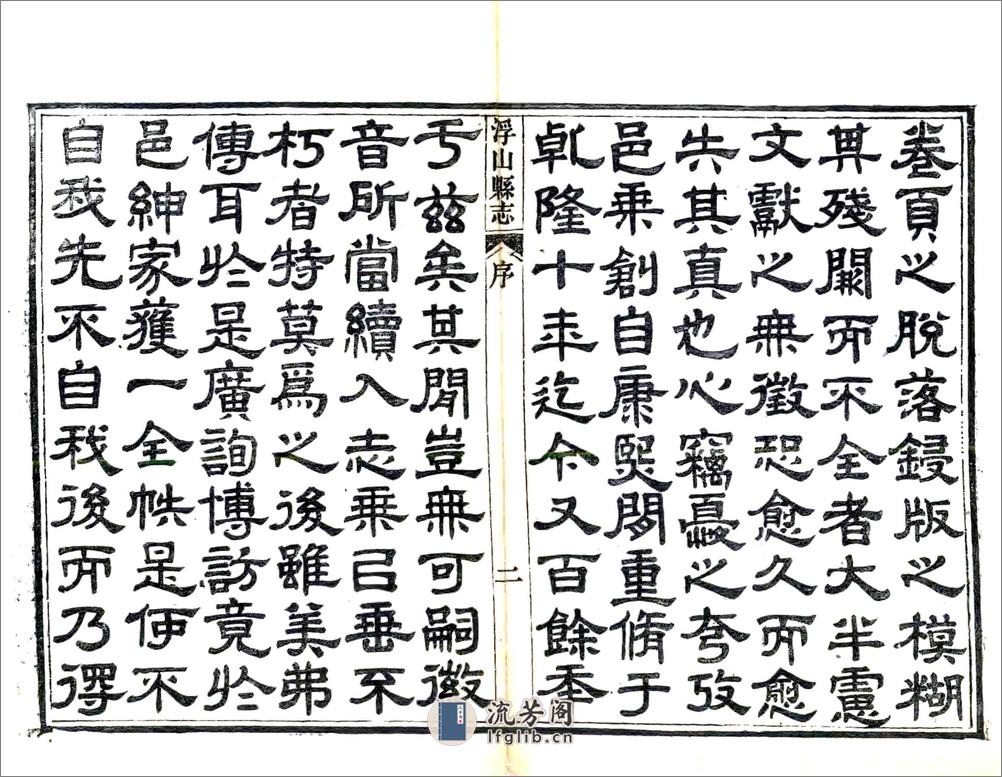 卷頁之脫落鋟版之模糊
其殘闕而不全者大半慮
文獻之無徵恐愈久而愈
失其真也心竊憂之攷
邑乘創自康熙閒重脩于
乹隆十年迄今又百餘年
浮山縣志 序 二
于茲矣其閒豈無可嗣徽
音所當續入志乘以垂不
朽者特莫爲之後雖美弗
傳耳於是廣詢博訪竟於
邑紳家獲一全帙是使不
自我先不自我後而乃得
流芳阁
lfglib.cn